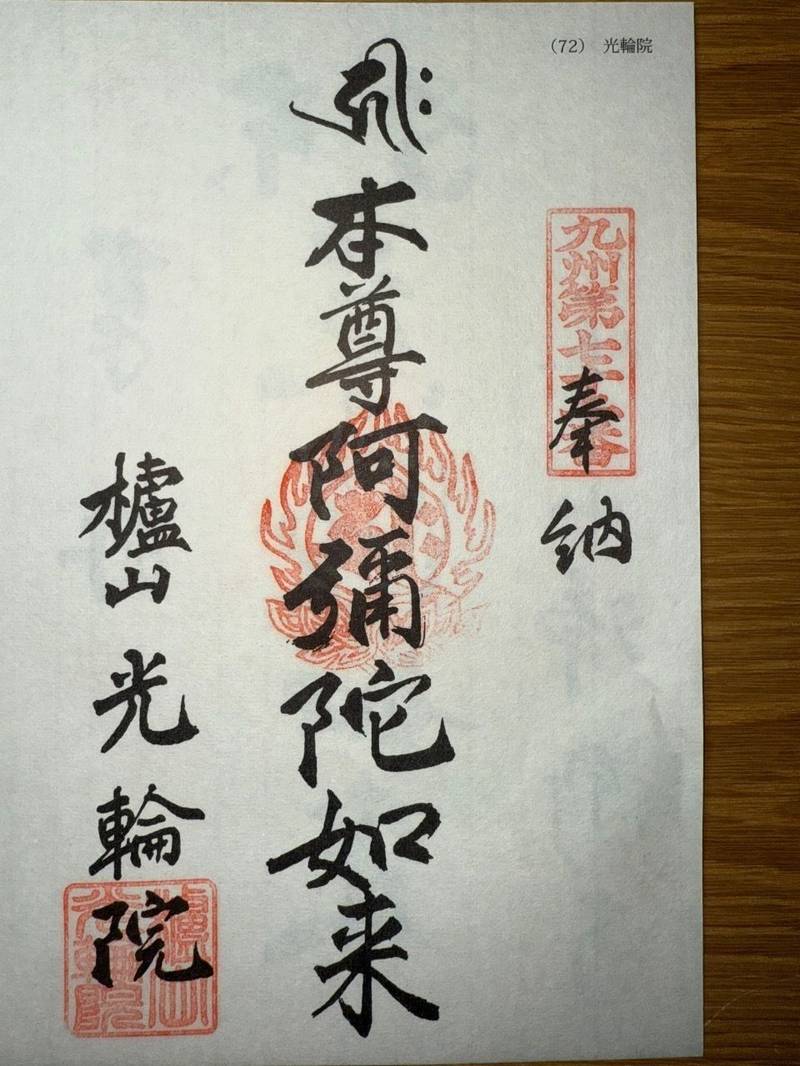 (72) 光輪院
九州第七十二番
奉納
𑖮𑖿𑖨𑖱𑖾 本尊阿彌陀如来
櫨山 光輪院
櫨山光輪院